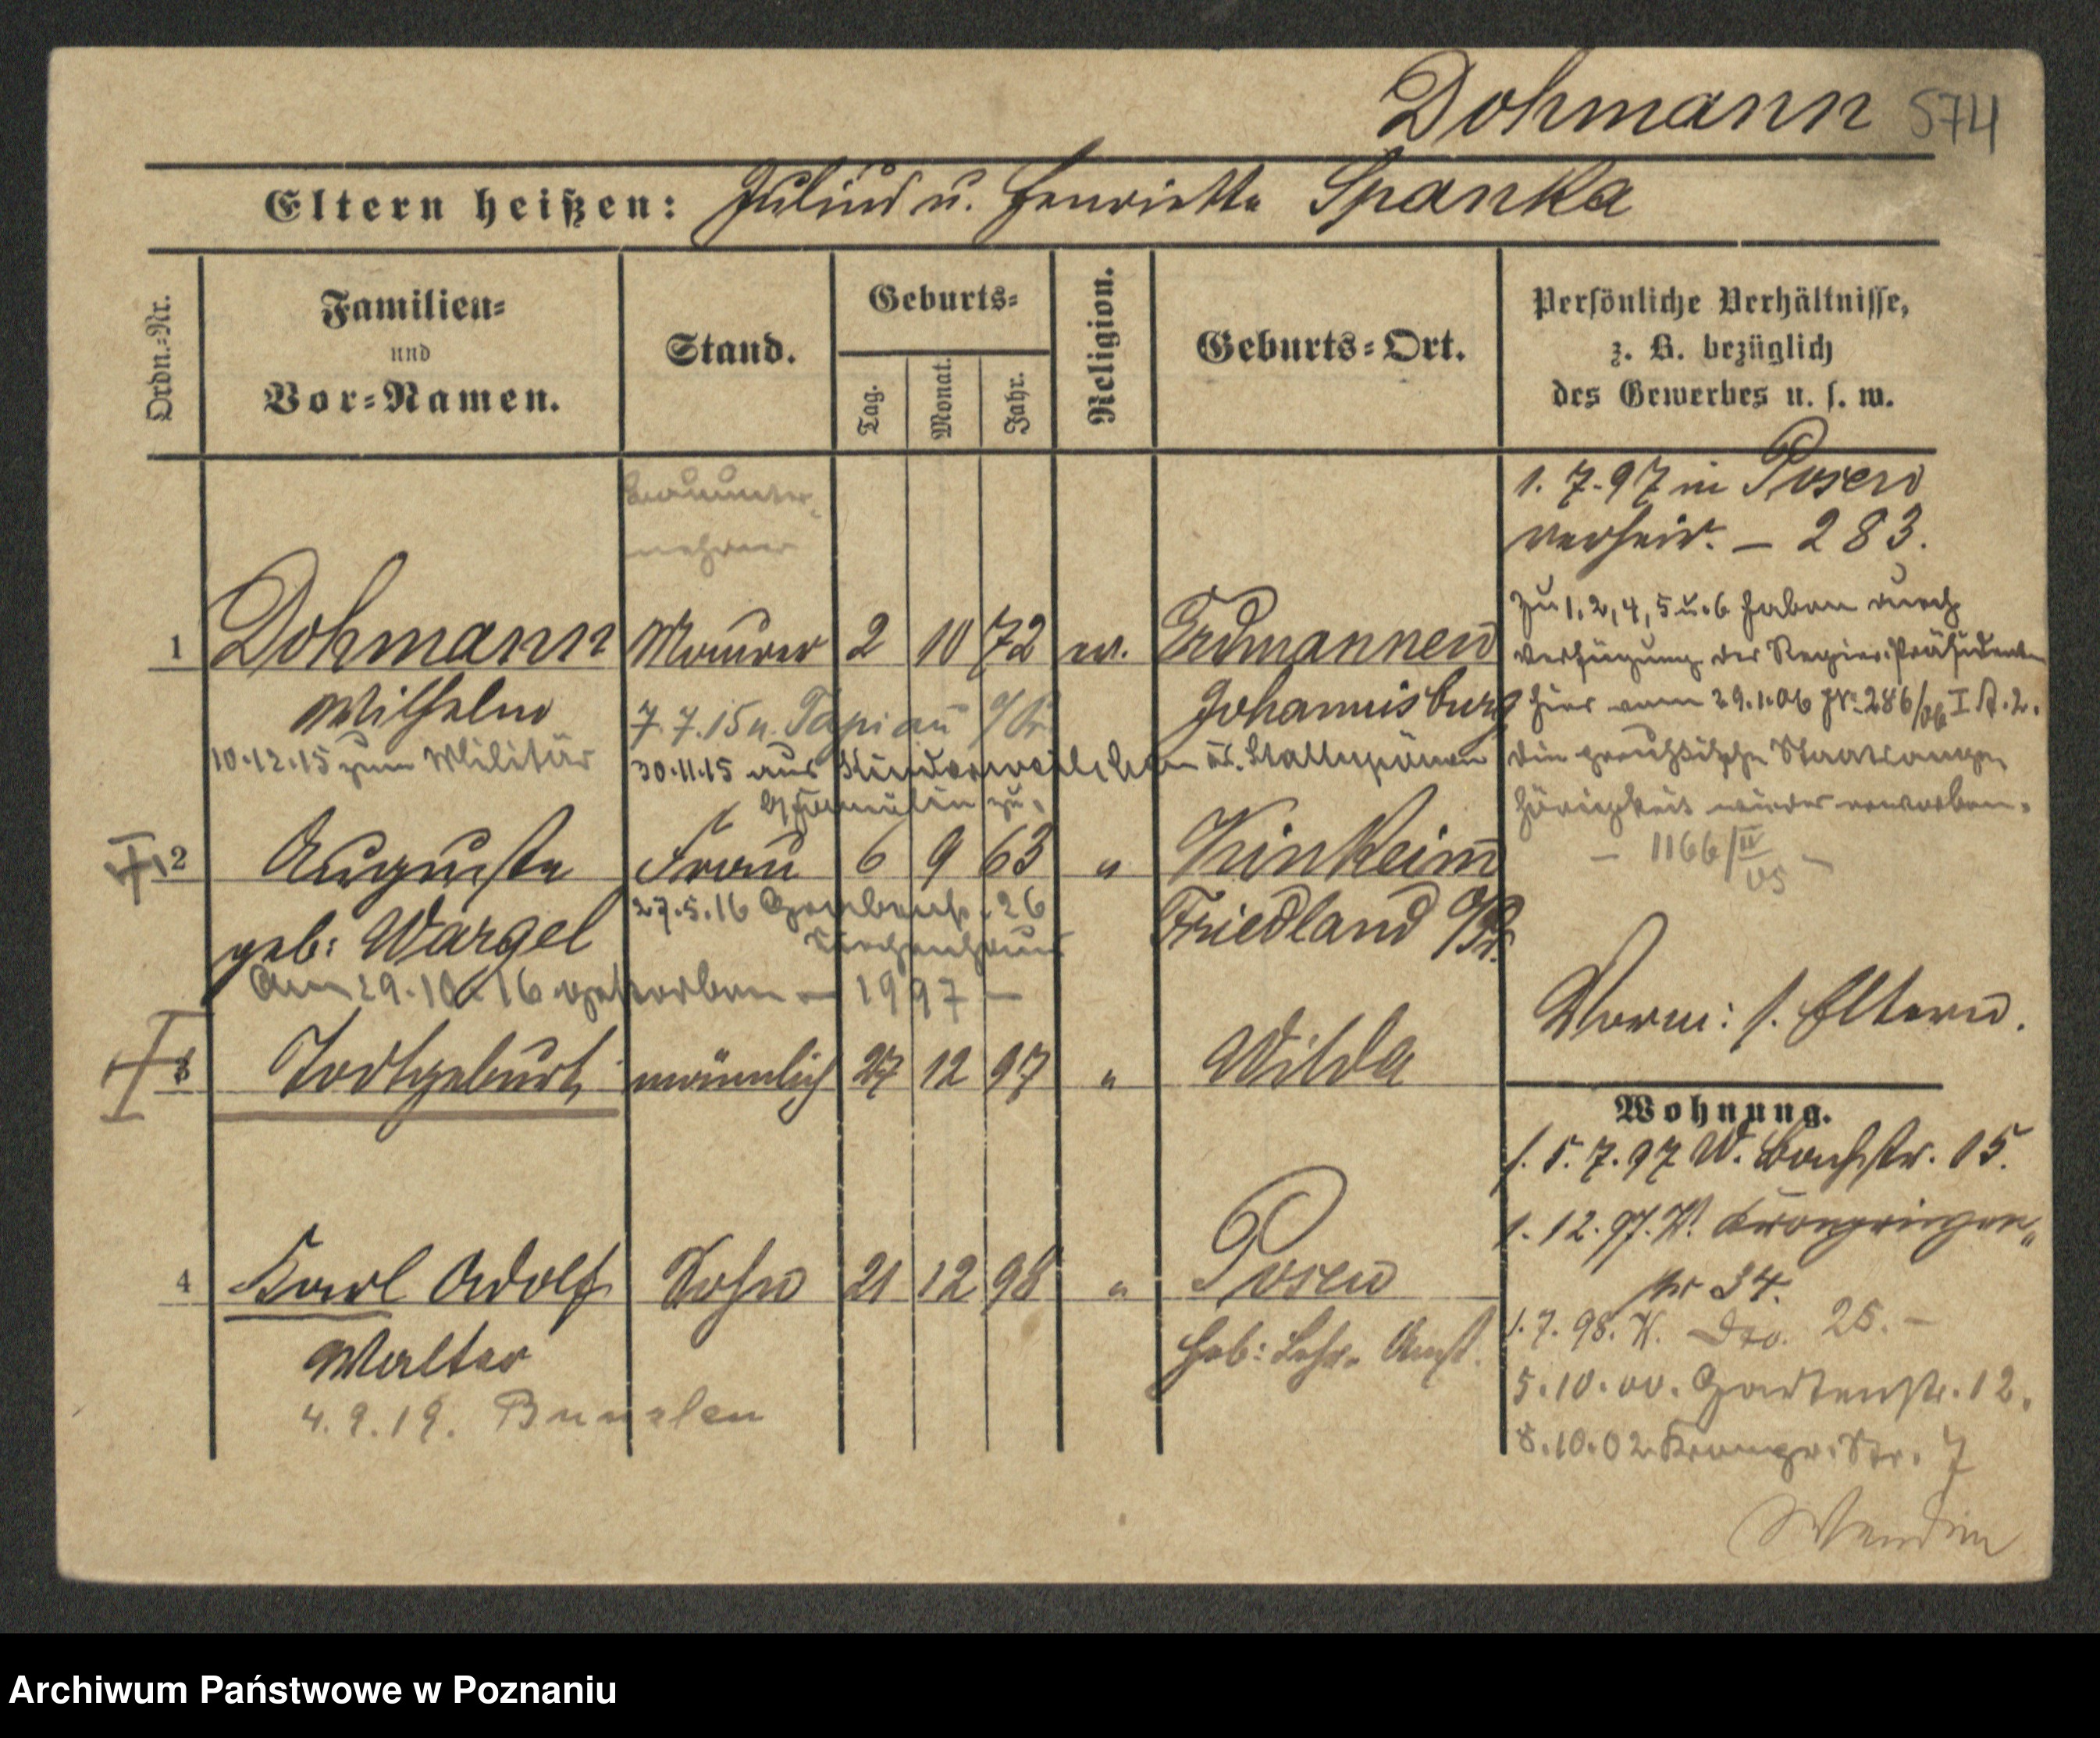 Dohmann 574
Eltern heißen: Julius u. Henriette Spanka
Ordn.-Nr.
Familien-
und
Vor-Namen.
Stand.
Geburts-
Tag.
Monat.
Jahr.
Religion.
Geburts-Ort.
Persönliche Verhältnisse,
z. B. bezüglich
des Gewerbes u. s. w.
Bauunter-
nehmer
1 Dohmann Maurer 2 10 72 ev. Erdmannen
Wilhelm 7.7.15 n. Tapiau O/Pr. Johannisburg
10.12.15 zum Militär 30.11.15 aus
2 Auguste Frau 6 9 63 " Kinkeim
geb: Wargel 27.5.16 26 Friedland O/Pr.
Am 29.10.16 gestorben - 1997 -
3 Todtgeburt männlich 27 12 97 " Wilda
4 Karl Adolf Sohn 21 12 98 " Posen
Walter Heb: Lehr. Anst.
4.9.19. Bunzlau
1.7.97 in Posen
verheir. - 283.
Zu 1, 2, 4, 5 u. 6 haben durch
Verfügung des Regier. Präsidenten
hier vom 29.1.06 No 286/06 I A. 2.
die preußische Staatsange-
hörigkeit wieder erworben.
- 1166/II 05 -
Vorm: s. Eltern.
Wohnung.
1.5.7.97 W. Bachstr. 15.
1.12.97. W. Kronprinzen-
str 34.
1.7.98. W. Dto. 25. -
5.10.00. Gartenstr. 12.
8.10.02 Kronpr. Str. 7
Archiwum Państwowe w Poznaniu